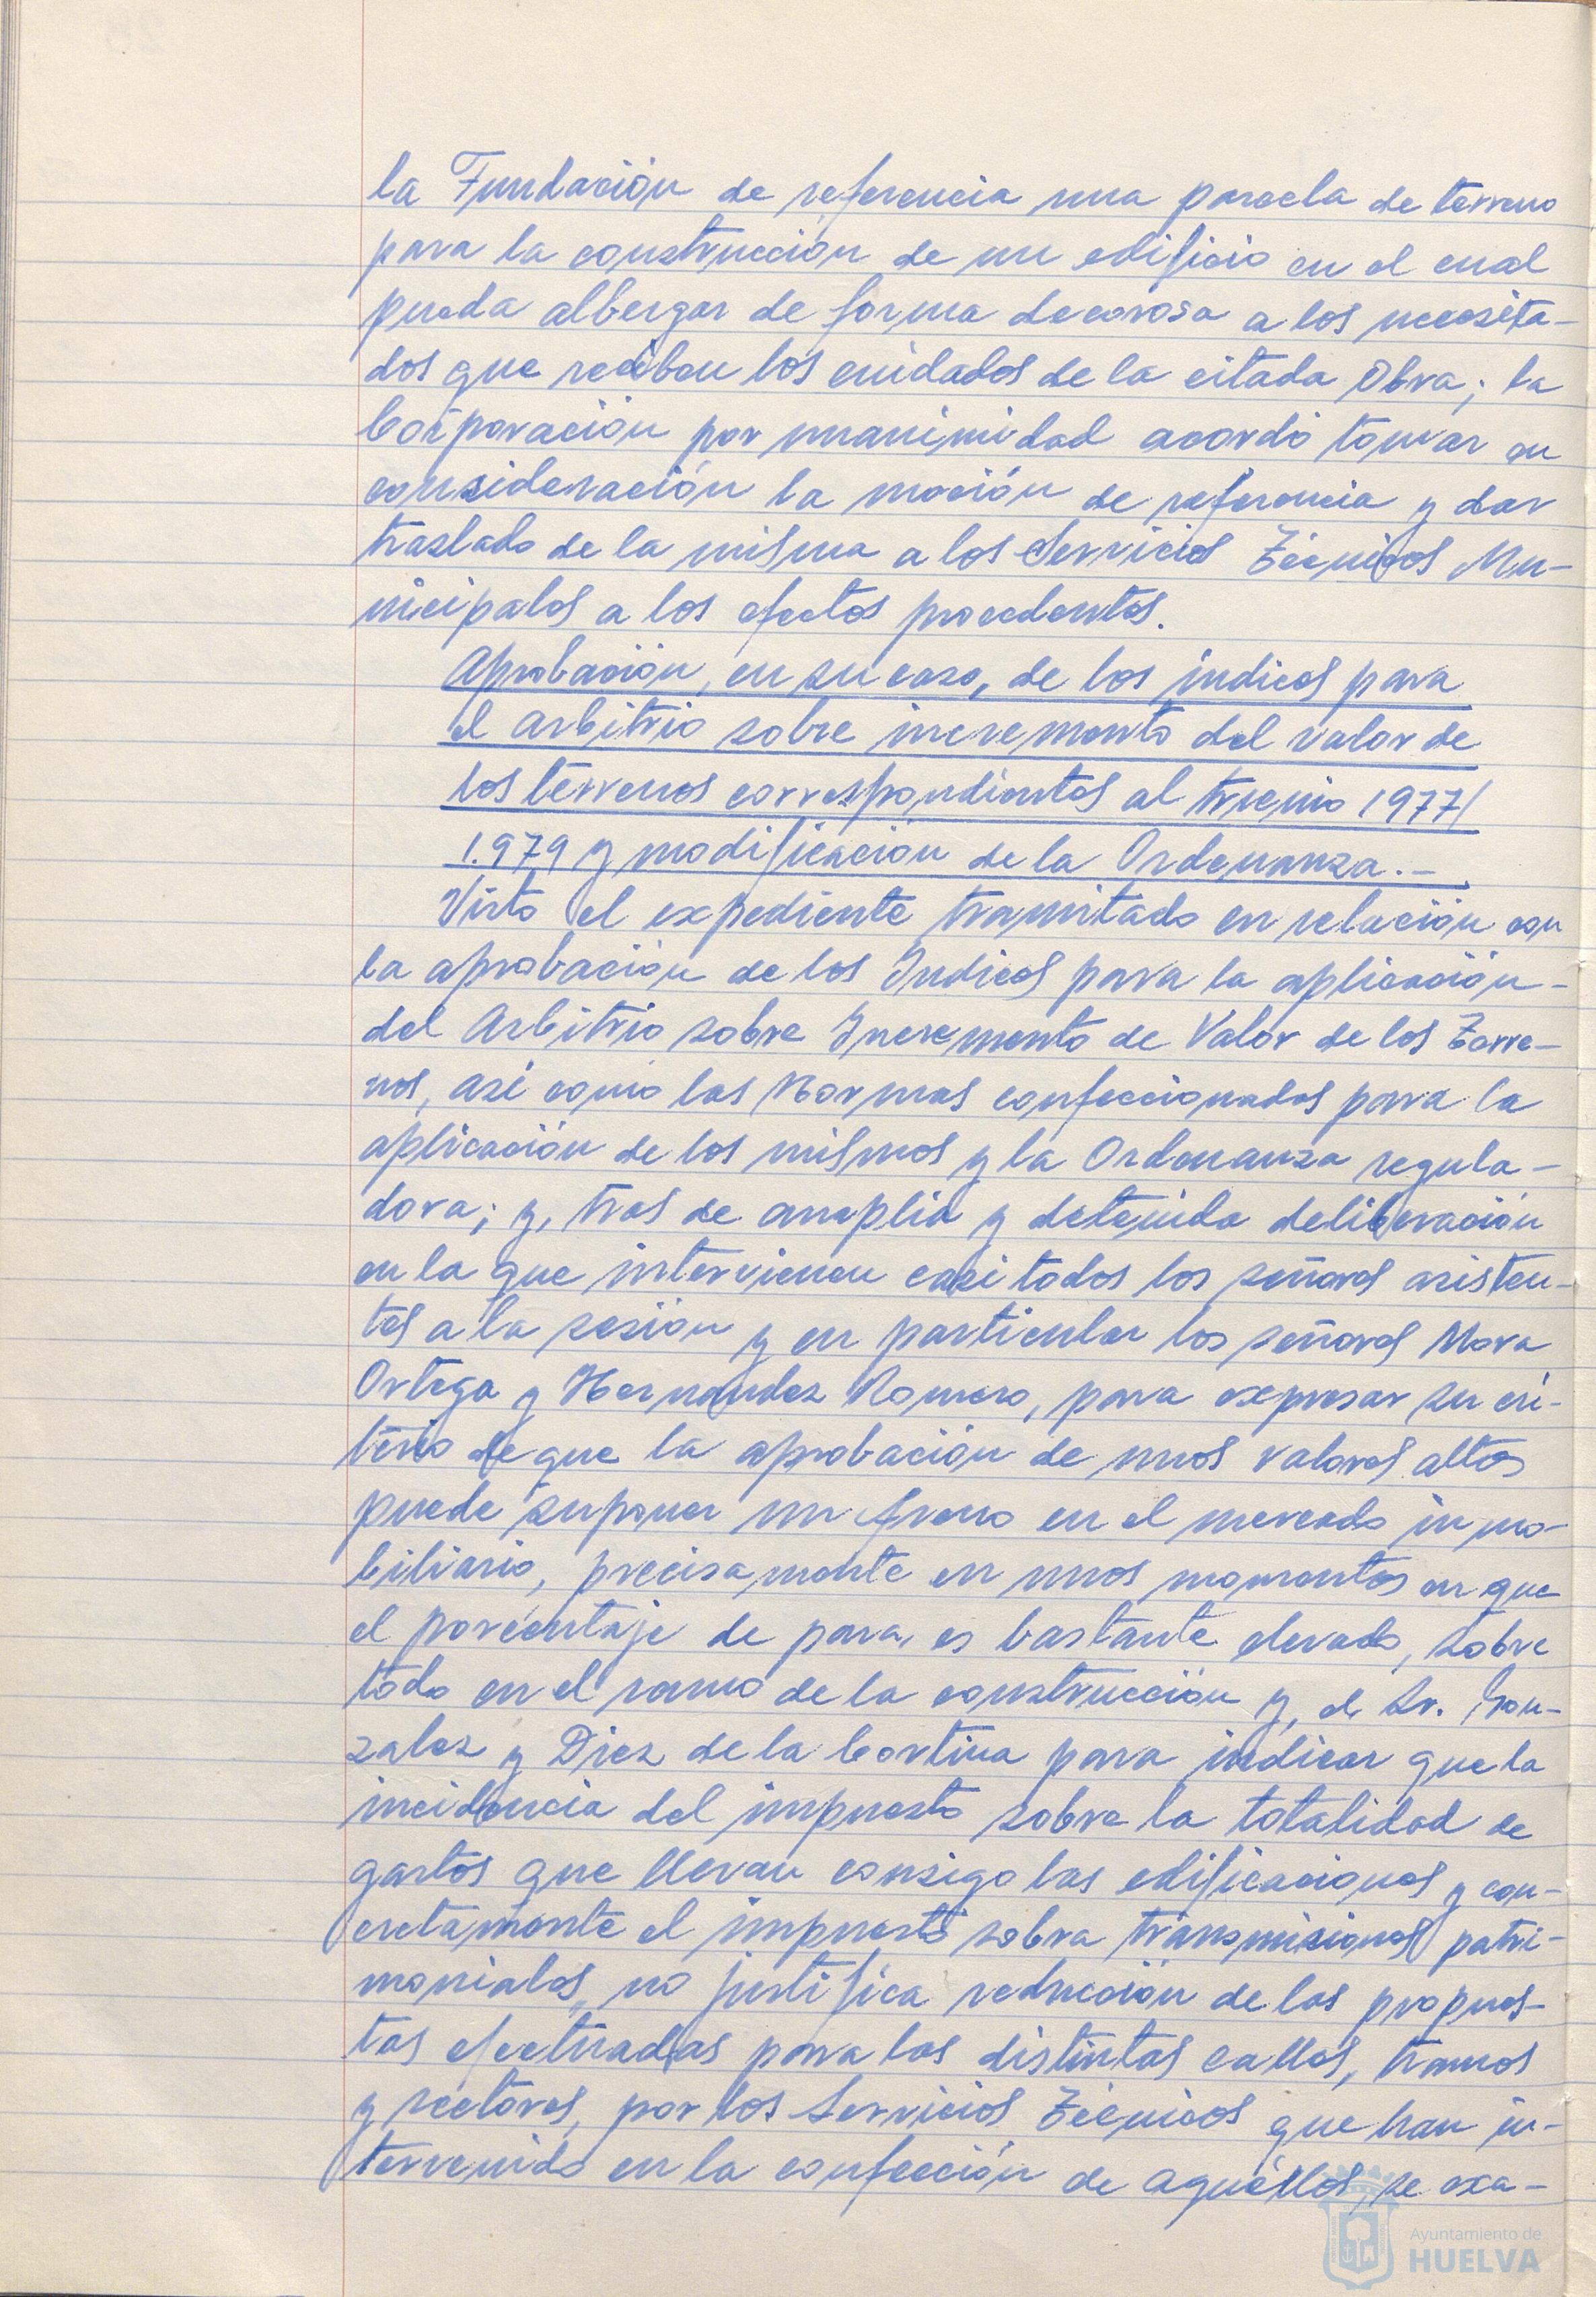 la Fundación de referencia una parcela de terreno
para la construcción de un edificio en el cual
pueda albergar de forma decorosa a los necesita-
dos que reciben los cuidados de la citada Obra; la
Corporación por unanimidad acordó tomar en
consideración la moción de referencia y dar
traslado de la misma a los Servicios Técnicos Mu-
nicipales a los efectos procedentes.
Aprobación, en su caso, de los índices para
el arbitrio sobre incremento del valor de
los terrenos correspondientes al trienio 1977/
1.979 y modificación de la Ordenanza.-
Visto el expediente tramitado en relación con
la aprobación de los Indices para la aplicación-
del Arbitrio sobre Incremento de Valor de los Terre-
nos, así como las Normas confeccionadas para la
aplicación de los mismos y la Ordenanza regula-
dora; y, tras de amplia y detenida deliberación
en la que intervienen casi todos los señores asisten-
tes a la sesión y en particular los señores Mora
Ortega y Hernandez Romero, para expresar su cri-
terio de que la aprobación de unos valores altos
puede suponer un freno en el mercado inmo-
biliario, precisamente en unos momentos en que
el porcentaje de paro, es bastante elevado, sobre
todo en el ramo de la construcción y, el Sr. Gon-
zalez y Diez de la Cortina para indicar que la
incidencia del impuesto sobre la totalidad de
gastos que llevan consigo las edificaciones y con-
cretamente el impuesto sobre transmisiones patri-
moniales, no justifica reducción de las propues-
tas efectuadas para las distintas calles, tramos
y sectores, por los Servicios Técnicos que han in-
tervenido en la confección de aquéllos, se exa-
Ayuntamiento de
HUELVA